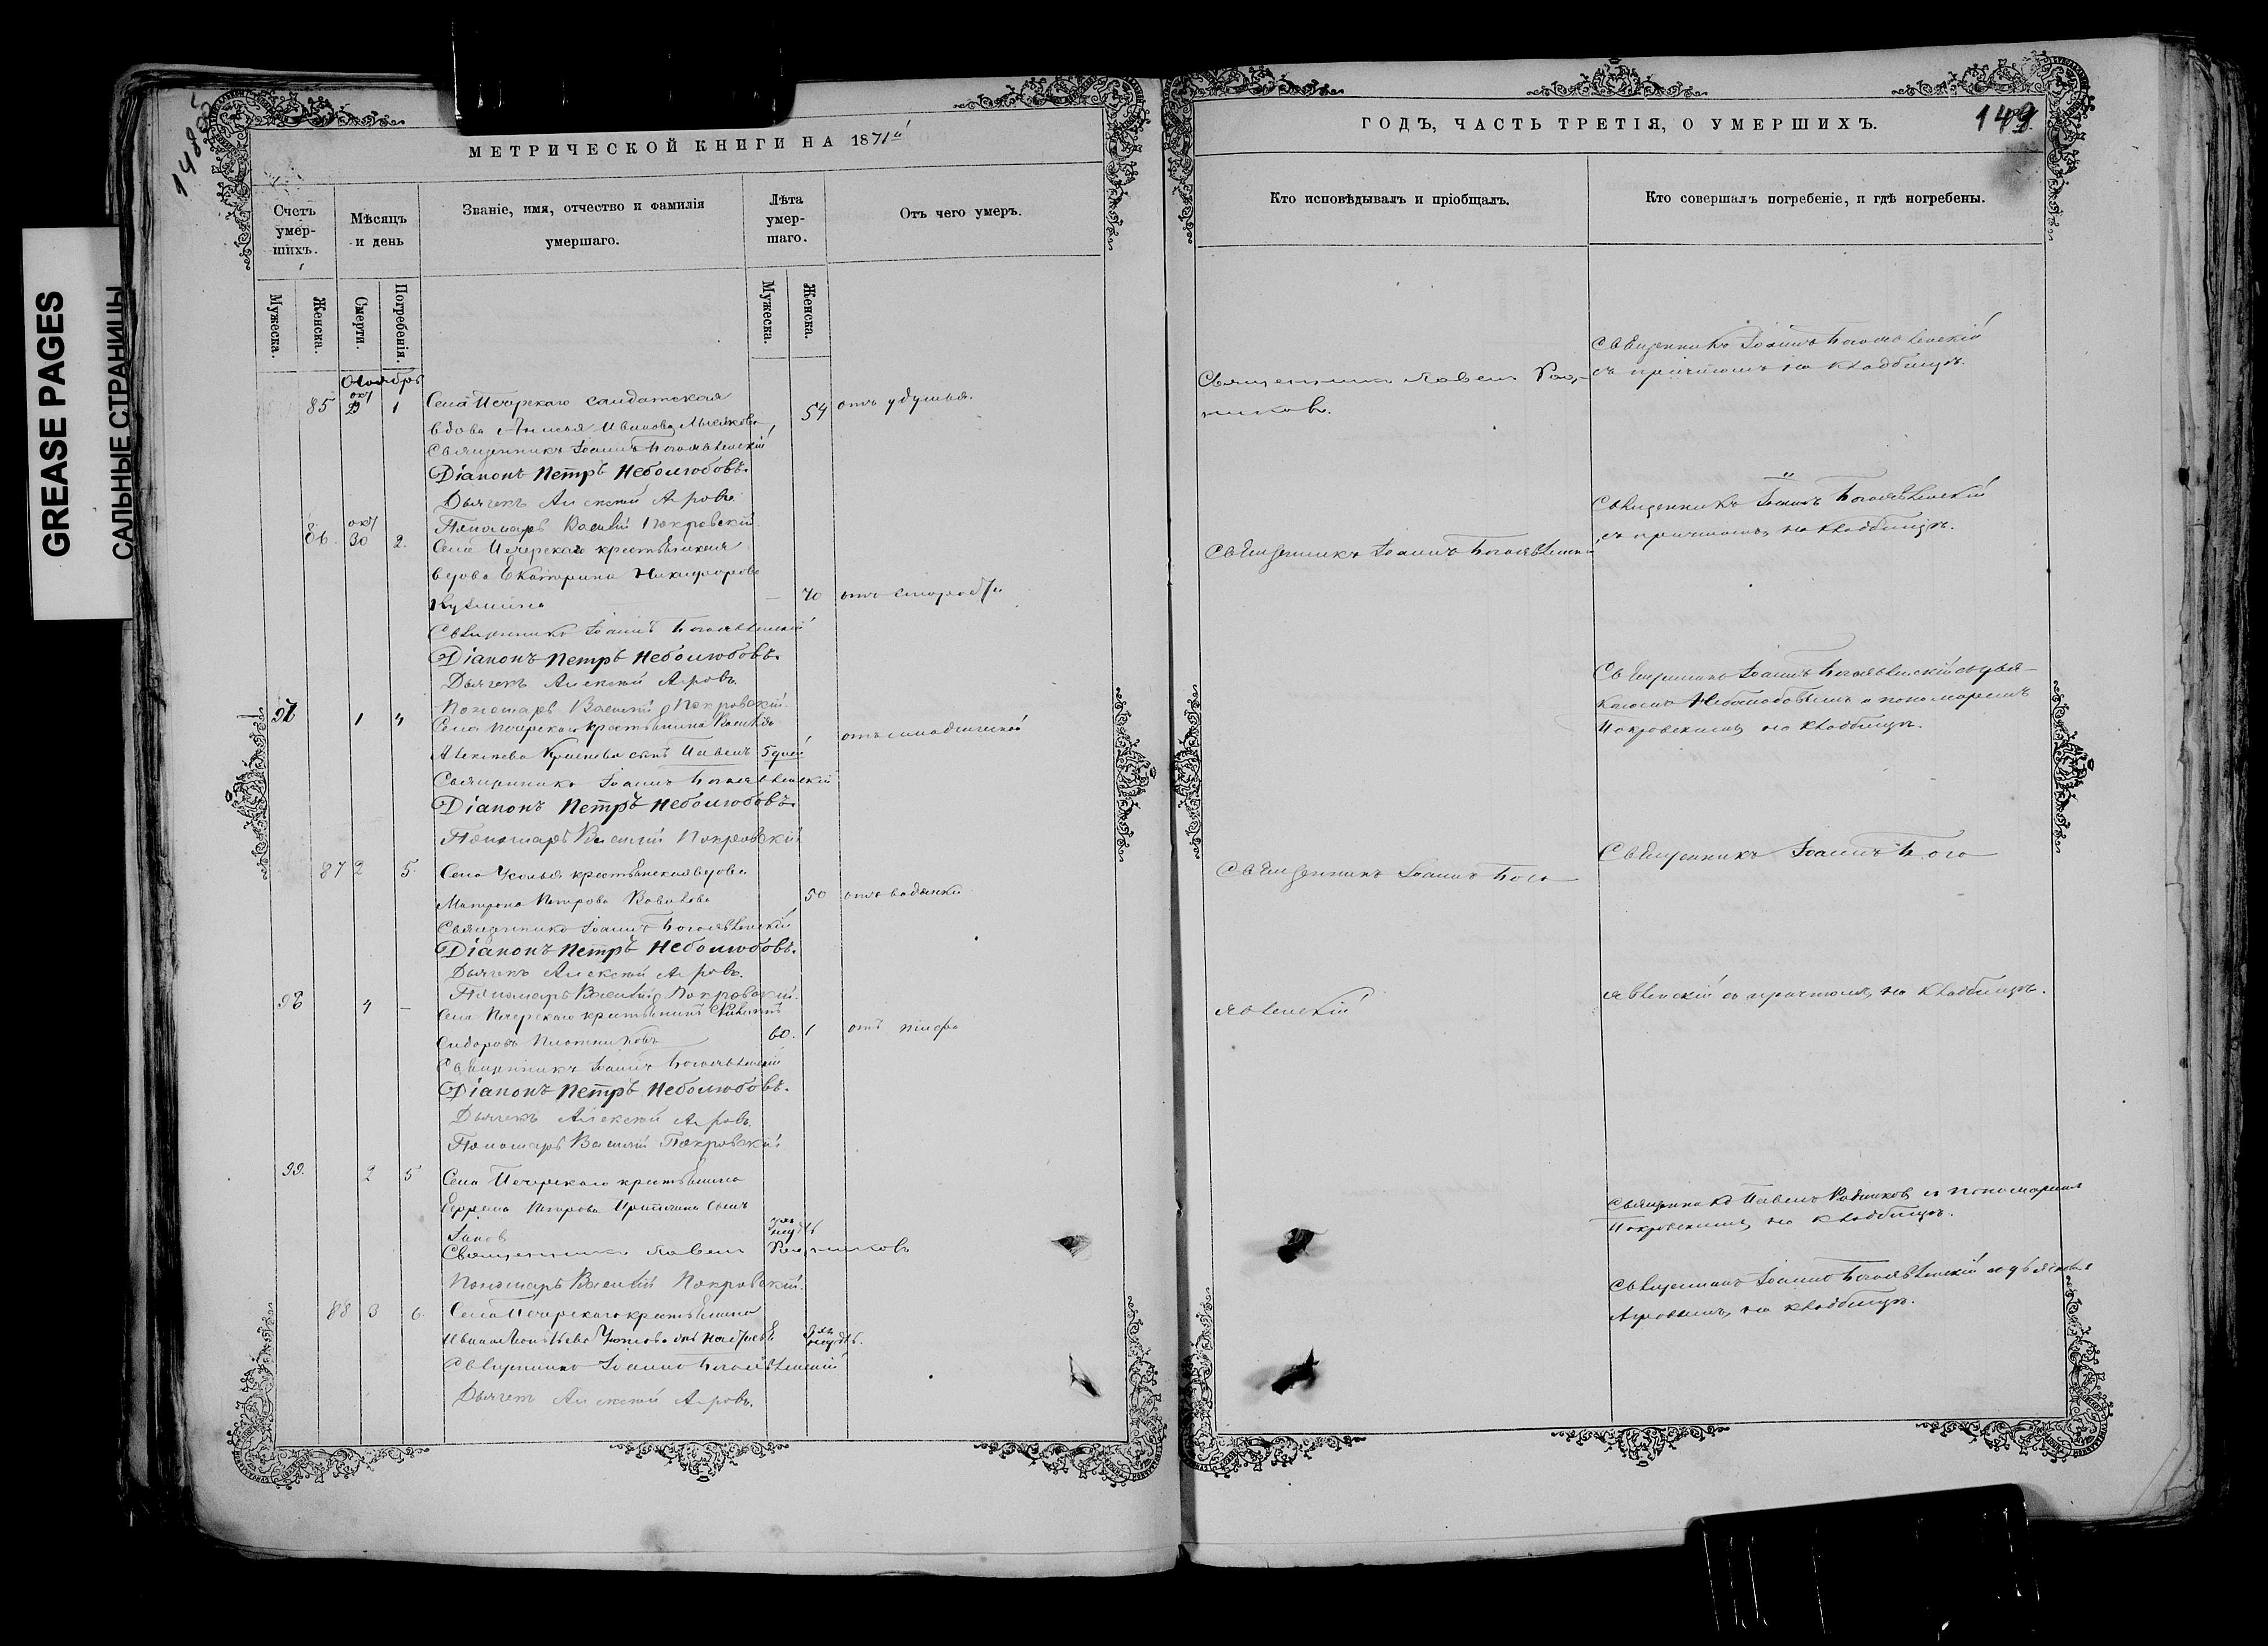 GREASE PAGES
САЛЬНЫЕ СТРАНИЦЫ
148
МЕТРИЧЕСКОЙ КНИГИ НА 1871й
Счетъ умер-шихъ.
Мѣсяцъ и день
Званіе, имя, отчество и фамилія умершаго.
Лѣта умер-шаго.
Отъ чего умеръ.
Мужеска.
Женска.
Смерти.
Погребенія.
Мужеска.
Женска.
85 окт 1 Села Печерскаго солдатская 54 отъ удушья.
вдова Ивановa
Священникъ Іоаннъ Богоявленскій
Діаконъ Петръ Неболюбовъ.
Дьячекъ Алексѣй Агровъ
Пономарь Василій Покровскій
86. окт 30 2. Села Печерскаго крестьянская
вдова Екатерина Никифорова
Кузмина 70 отъ старости
Священникъ Іоаннъ Богоявленскій
Діаконъ Петръ Неболюбовъ.
Дьячекъ Алексѣй Агровъ
Пономарь Василій Покровскій.
97 1 4 Села Печерскаго крестьянина
сынъ Павелъ 5 дней
Священникъ Іоаннъ Богоявленскій
Діаконъ Петръ Неболюбовъ.
Пономарь Василій Покровскій
87 2 5. Села Усолья крестьянская вдова
Матрона Петрова 50 отъ водянки
Священникъ Іоаннъ Богоявленскій
Діаконъ Петръ Неболюбовъ.
Дьячекъ Алексѣй Агровъ.
Пономарь Василій Покровскій.
98 4 – Села Печерскаго крестьянинъ
Сидоровъ Плотниковъ 60. отъ тифа
Священникъ Іоаннъ Богоявленскій
Діаконъ Петръ Неболюбовъ.
Дьячекъ Алексѣй Агровъ
Пономарь Василій Покровскій
99. 2 5 Села Печерскаго крестьянина
Ефрема сынъ
Іаковъ
Священникъ Павелъ Родниковъ
Пономарь Василій Покровскій.
88 3 6. Села Печерскаго крестьянина
Ивана
Священникъ Іоаннъ Богоявленскій
Дьячекъ Алексѣй Агровъ.
ГОДЪ, ЧАСТЬ ТРЕТІЯ, О УМЕРШИХЪ.
149
Кто исповѣдывалъ и пріобщалъ.
Кто совершалъ погребеніе, и гдѣ погребены.
Священникъ Павелъ Род-
никовъ.
Священникъ Іоаннъ Богоявленскій
съ причтомъ, на кладбищѣ.
Священникъ Іоаннъ Богоявленскій
Священникъ Іоаннъ Богоявленскій
съ причтомъ, на кладбищѣ.
Священникъ Іоаннъ Богоявленскій съ діа-
кономъ Неболюбовымъ и пономаремъ
Покровскимъ, на кладбищѣ.
Священникъ Іоаннъ Бого
Священникъ Іоаннъ Бого
явленскій
явленскій съ причтомъ, на кладбищѣ.
Священникъ Павелъ Родниковъ съ пономаремъ
Покровскимъ, на кладбищѣ.
Священникъ Іоаннъ Богоявленскій съ дьячкомъ
Агровымъ, на кладбищѣ.